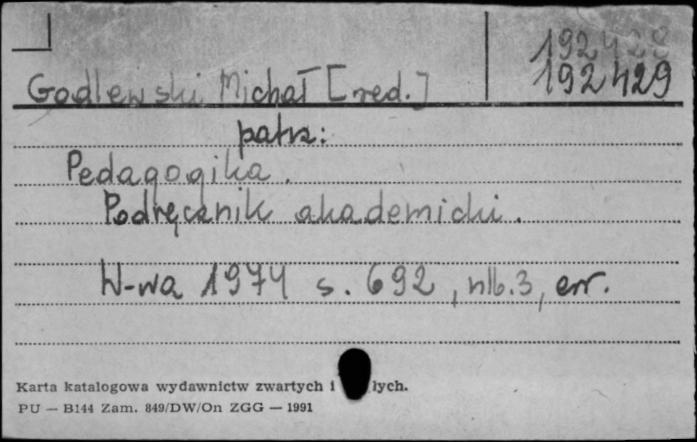 192429
192429
Godlewski Michał [red.]
patrz:
Pedagogika.
Podręcznik akademicki.
W-wa 1974 s. 692, nlb. 3, err.
Karta katalogowa wydawnictw zwartych i łych.
PU — B144 Zam. 849/DW/On ZGG — 1991